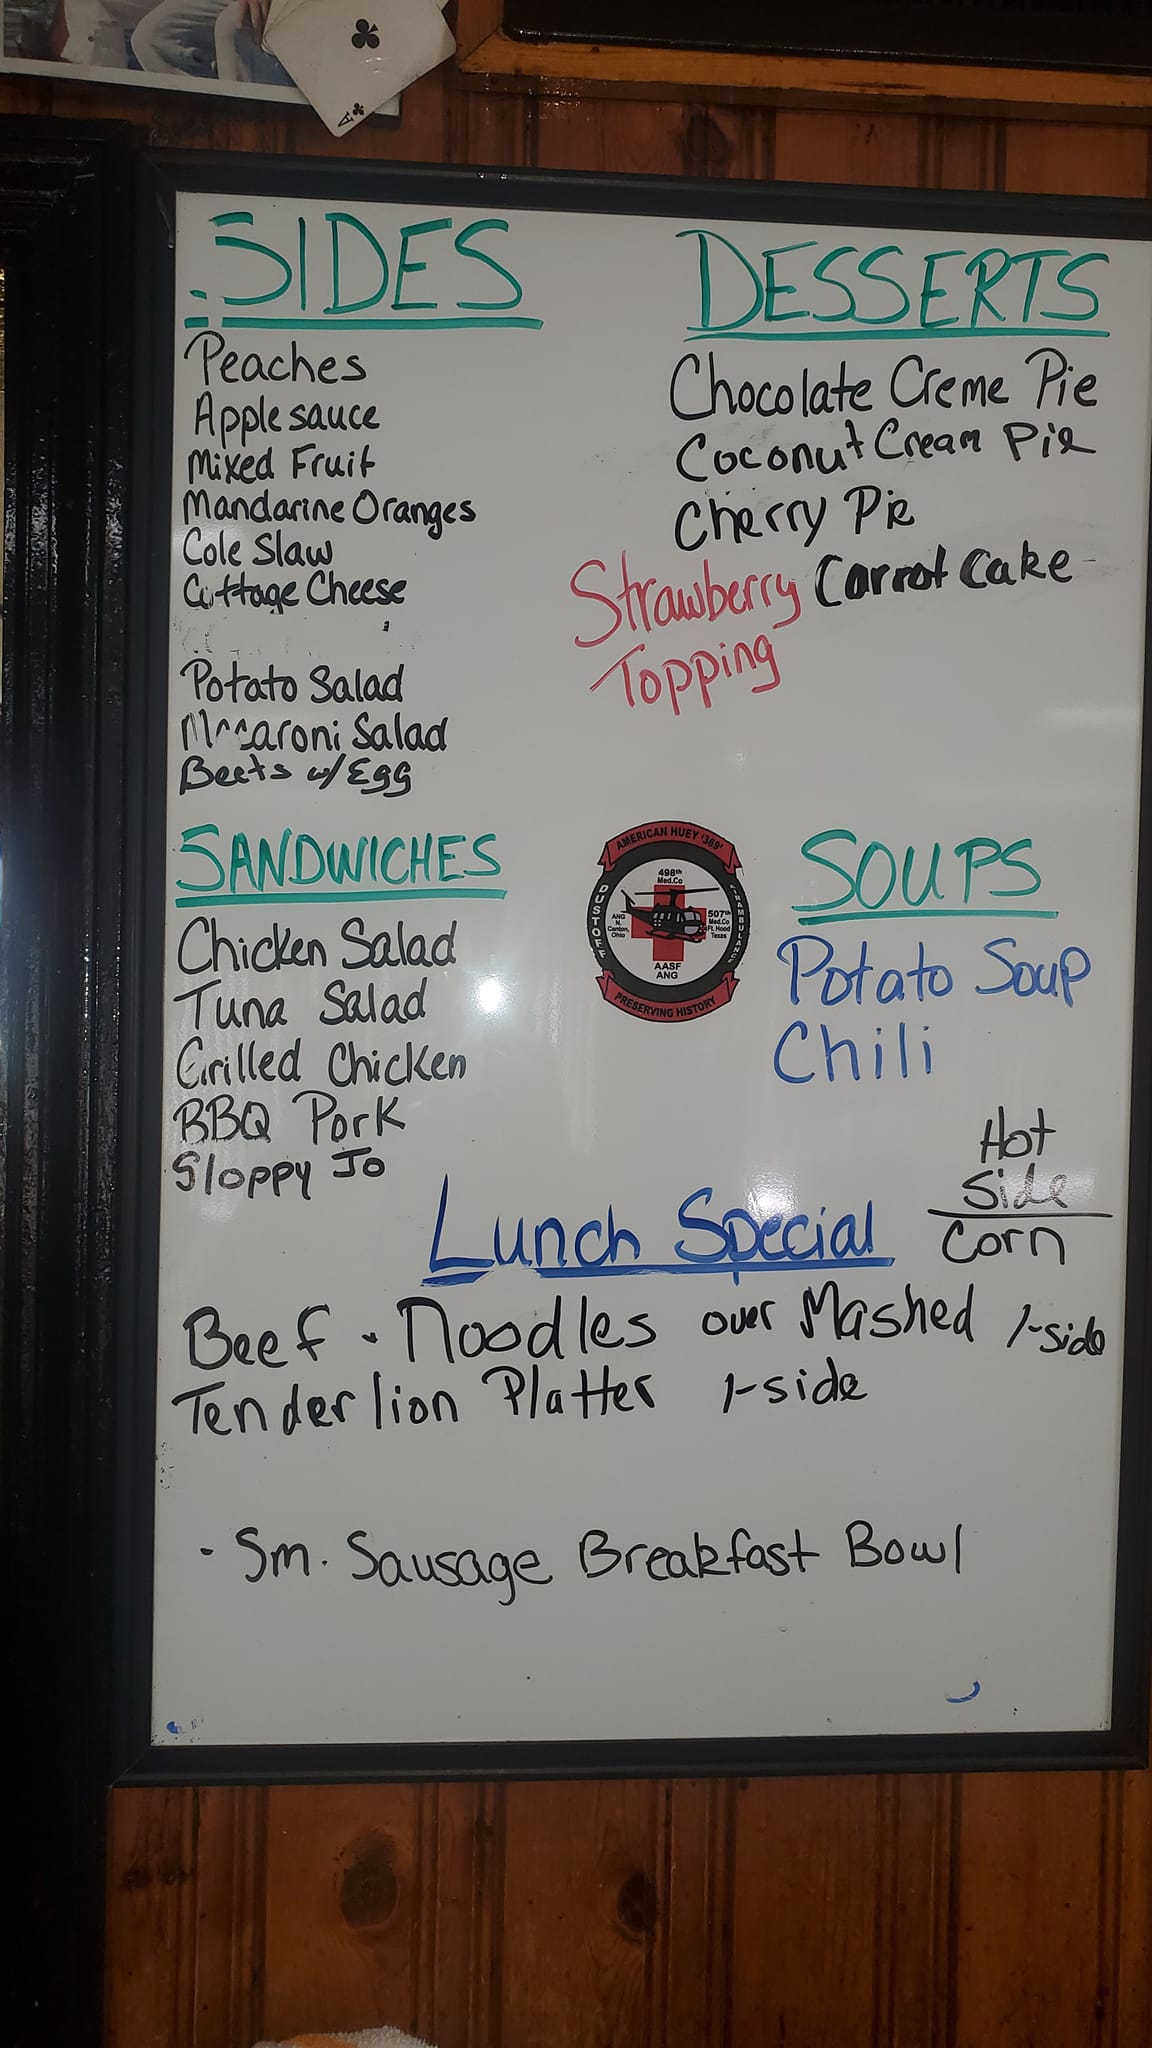 A
SIDES
Peaches
Applesauce
Mixed Fruit
Mandarine Oranges
Cole Slaw
Cottage Cheese
Potato Salad
Macaroni Salad
Beets w/ Egg
DESSERTS
Chocolate Creme Pie
Coconut Cream Pie
Cherry Pie
Carrot Cake
Strawberry
Topping
SANDWICHES
Chicken Salad
Tuna Salad
Grilled Chicken
BBQ Pork
Sloppy Jo
AMERICAN HUEY '369'
DUSTOFF
AIRAMBULANCE
498th
Med.Co
ANG
N.
Canton,
Ohio
507th
Med.Co
Ft. Hood
Texas
AASF
ANG
PRESERVING HISTORY
SOUPS
Potato Soup
Chili
Hot
Side
Corn
Lunch Special
Beef - Noodles over Mashed 1-side
Tenderlion Platter 1-side
· Sm. Sausage Breakfast Bowl